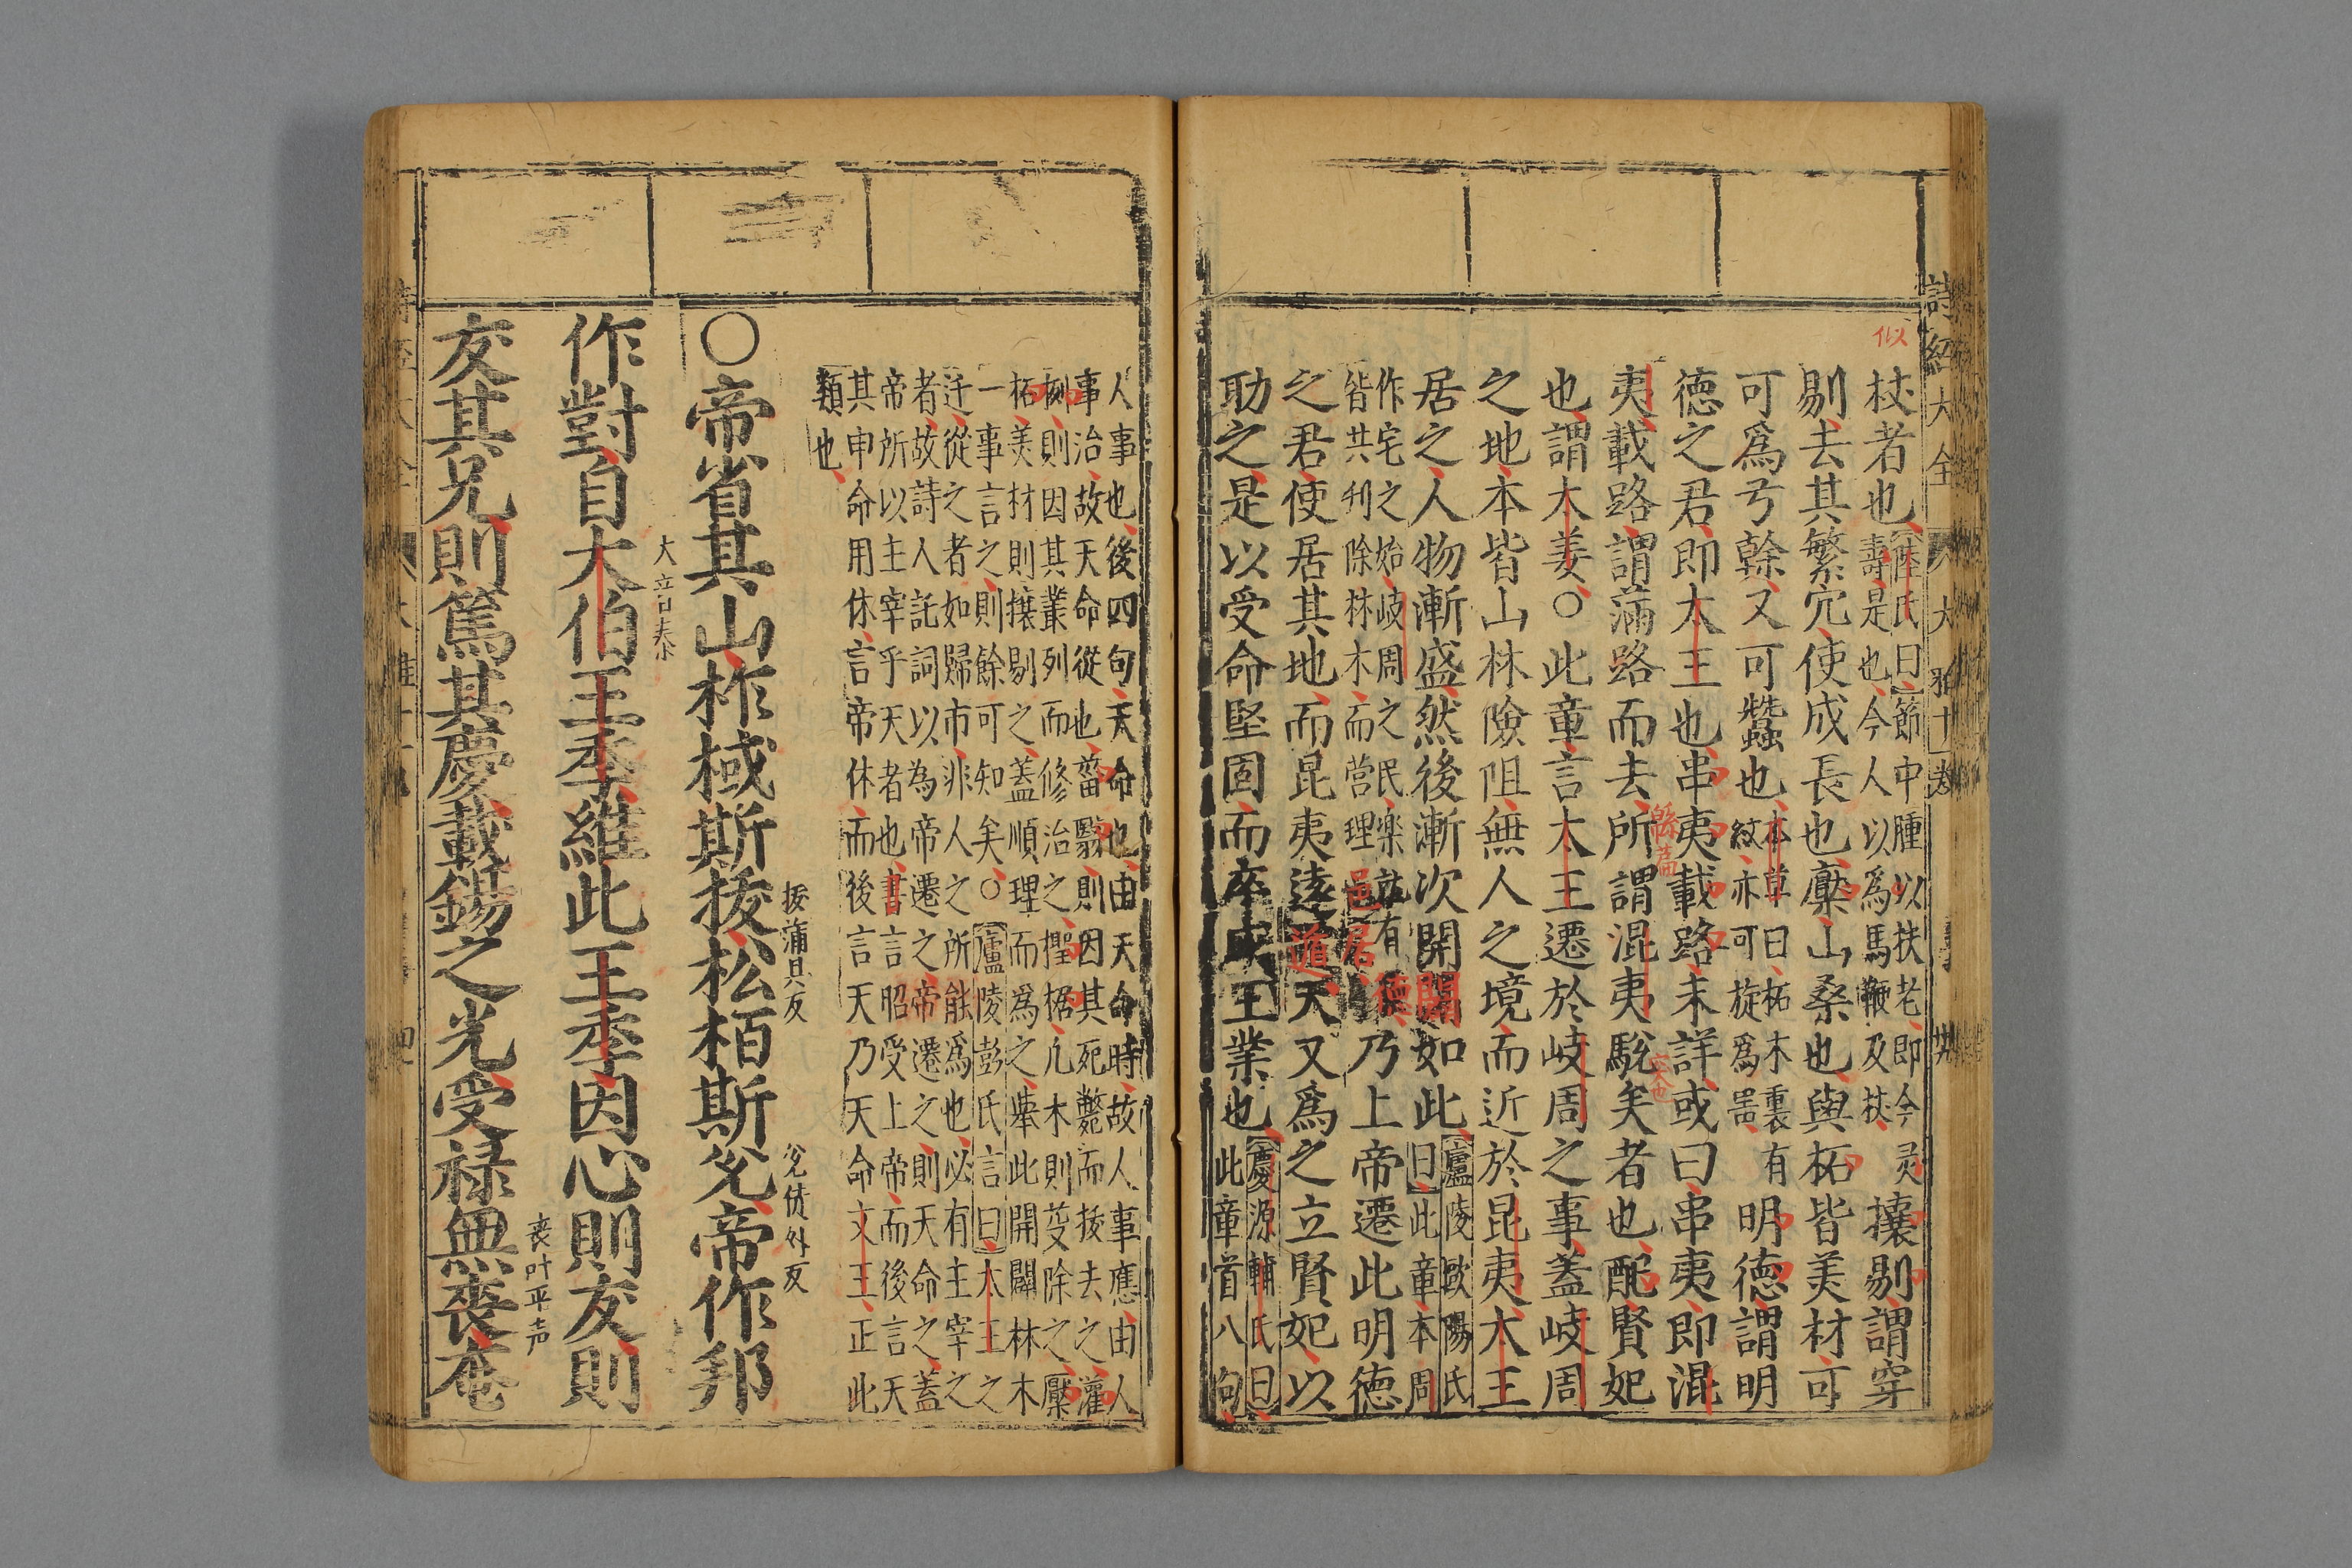 詩經大全 大雅十六卷
似
杖者也陸氏曰節中腫以扶老即今灵
壽是也今人以爲馬鞭及杖攘剔謂穿
剔去其繁冗使成長也檿山桑也與柘皆美材可
可爲弓幹又可蠶也本草曰柘木裏有
紋亦可旋爲器明德謂明
德之君即太王也串夷載路未詳或曰串夷即混
夷載路謂滿路而去所謂混夷駾矣者也配賢妃
緜篇
也謂太姜○此章言太王遷於岐周之事蓋岐周
之地本皆山林險阻無人之境而近於昆夷太王
居之人物漸盛然後漸次開闢如此廬陵歐陽氏
曰此章本周
作宅之始岐周之民樂就有德
皆共刋除林木而营理邑居乃上帝遷此明德
之君使居其地而昆夷遠遁天又爲之立賢妃以
助之是以受命堅固而卒成王業也慶源輔氏曰
此章首八句
人事也後四句天命也由天命時故人事應由人
事治故天命從也菑翳則因其死斃而拔去之灌
栵則因其叢列而修治之檉椐凢木則芟除之檿
柘美材則攘剔之蓋順理而爲之舉此開闢林木
一事言之則餘可知矣○廬陵彭氏言曰太王之
迁從之者如歸市非人之所能爲也必有主宰之
者故詩人託詞以為帝遷之帝遷之則天命之蓋
帝所以主宰乎天者也書言昭受上帝而後言天
其申命用休言帝休而後言天乃天命文王正此
類也
○帝省其山柞棫斯拔松栢斯兌帝作邦
拔蒲具反
兌徒外反
作對自大伯王季維此王季因心則友則
大音泰
友其兄則篤其慶載錫之光受禄無喪奄
喪叶平声